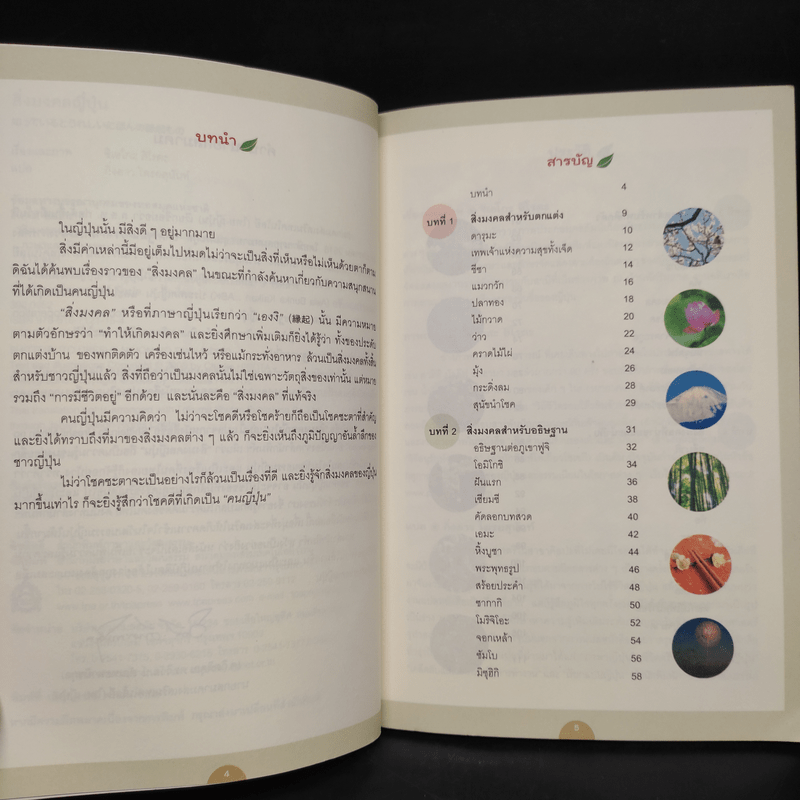 บทนำ
ในญี่ปุ่นนั้น มีสิ่งดี ๆ อยู่มากมาย
สิ่งมีค่าเหล่านี้มีอยู่เต็มไปหมดไม่ว่าจะเป็นสิ่งที่เห็นหรือไม่เห็นด้วยตาก็ตาม
ดิฉันได้ค้นพบเรื่องราวของ “สิ่งมงคล” ในขณะที่กำลังค้นหาเกี่ยวกับความสนุกสนาน
ที่ได้เกิดเป็นคนญี่ปุ่น
“สิ่งมงคล” หรือที่ภาษาญี่ปุ่นเรียกว่า “เองงิ” (縁起) นั้น มีความหมาย
ตามตัวอักษรว่า “ทำให้เกิดมงคล” และยิ่งศึกษาเพิ่มเติมก็ยิ่งได้รู้ว่า ทั้งของประดับ
ตกแต่งบ้าน ของพกติดตัว เครื่องเซ่นไหว้ หรือแม้กระทั่งอาหาร ล้วนเป็นสิ่งมงคลทั้งสิ้น
สำหรับชาวญี่ปุ่นแล้ว สิ่งที่ถือว่าเป็นมงคลนั้นไม่ใช่เฉพาะวัตถุสิ่งของเท่านั้น แต่หมาย
รวมถึง “การมีชีวิตอยู่” อีกด้วย และนั่นละคือ “สิ่งมงคล” ที่แท้จริง
คนญี่ปุ่นมีความคิดว่า ไม่ว่าจะโชคดีหรือโชคร้ายก็ถือเป็นโชคชะตาที่สำคัญ
และยิ่งได้ทราบถึงที่มาของสิ่งมงคลต่าง ๆ แล้ว ก็จะยิ่งเห็นถึงภูมิปัญญาอันล้ำลึกของ
ชาวญี่ปุ่น
ไม่ว่าโชคชะตาจะเป็นอย่างไรก็ล้วนเป็นเรื่องที่ดี และยิ่งรู้จักสิ่งมงคลของญี่ปุ่น
มากขึ้นเท่าไร ก็จะยิ่งรู้สึกว่าโชคดีที่เกิดเป็น “คนญี่ปุ่น”
4
สารบัญ
บทนำ 4
บทที่ 1 สิ่งมงคลสำหรับตกแต่ง 9
ดารุมะ 10
เทพเจ้าแห่งความสุขทั้งเจ็ด 12
ชีซา 14
แมวกวัก 16
ปลาทอง 18
ไม้กวาด 20
ว่าว 22
คราดไม้ไผ่ 24
มุ้ง 26
กระดิ่งลม 28
สุนัขนำโชค 29
บทที่ 2 สิ่งมงคลสำหรับอธิษฐาน 31
อธิษฐานต่อภูเขาฟูจิ 32
โอมิโกชิ 34
ฝันแรก 36
เซียมซี 38
คัดลอกบทสวด 40
เอมะ 42
หิ้งบูชา 44
พระพุทธรูป 46
สร้อยประคำ 48
ซากากิ 50
โมริจิโอะ 52
จอกเหล้า 54
ซัมโบ 56
มิซุฮิกิ 58
5